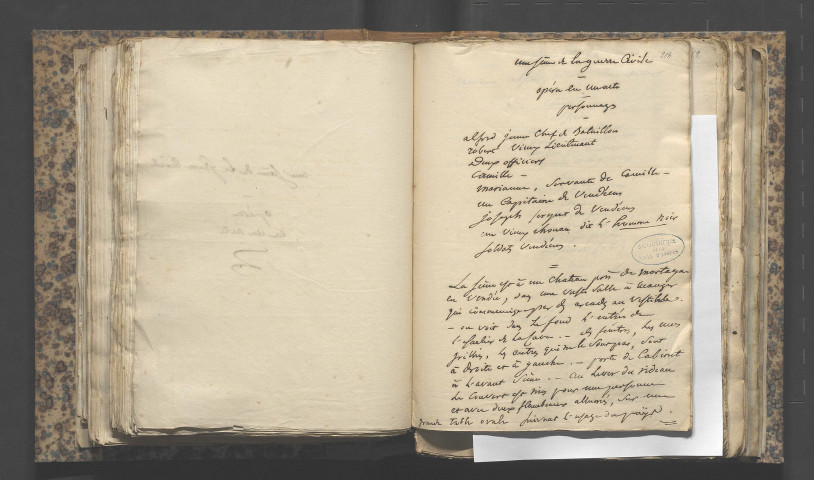 une scène de la guerre Civile
214
opéra en un acte
personnages
alfred jeune Chef de Bataillon
robert vieux Lieutenant
deux officiers
Camille -
marianne, servante de Camille -
un Capitaine de Vendéens
joseph de Vendéens
un vieux chouan dit l'homme noir
soldats vendéens.
La scène est à un chateau près de mortagne
en Vendée, dans une vaste salle à manger
qui communique par des arcades au vestibule -
- on voit dans le fond l'entrée de
l'escalier de la cave. - des fenêtres, les unes
grillées, les autres sont
à droite et à gauche. - porte de Cabinet
à l'avant scène. - au lever du rideau
le couvert est mis pour une personne
et avec deux flambeaux allumés, sur une
grande table ovale suivant l'usage du pays.